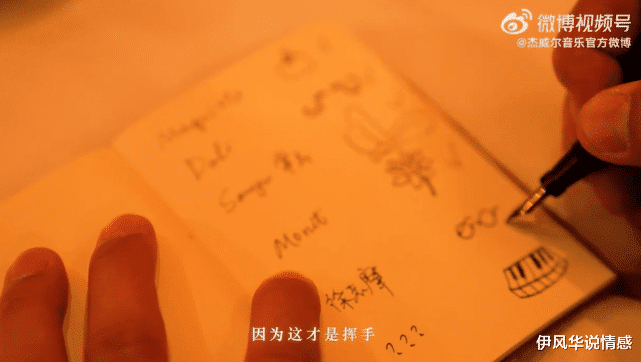 微博视频号
@杰威尔音乐官方微博
Magritte
Dali
Sanyu 常玉
Monet
徐志摩
???
因为这才是挥手
伊风华说情感